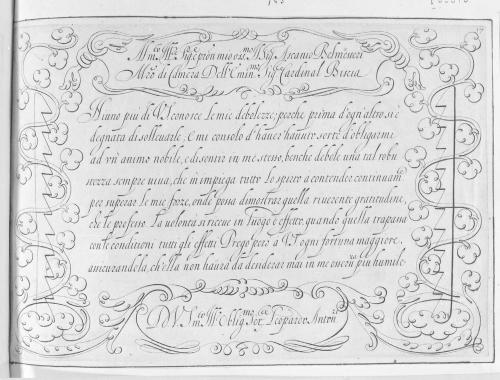 Al m.to Ill.re Sig.r e p̃ron mio oss.mo Il Sig.r Ascanio Belmesseri
M.ro di Camera Dell' Emin.mo Sig.r Cardinal Biscia
Niuno piu di V.S. conosce le mie debolezze; perche prima d'ogn'altro si è
degnata di solleuarle. E mi consolo d'hauer hauuto sorte d'obligarmi
ad vn' animo nobile, e di sentir in me stesso, benche debole una tal robu
stezza sempre uiua, che m'impiega tutto lo spirto a contender continuam.te
per superar le mie forze, onde possa dimostrar quella riuerente gratitudine,
che le professo. La uolontà si riceue in luogo d'effetto, quando quella trapassa
con le conditioni tutti gli effetti. Prego però a V.S. ogni fortuna maggiore,
assicurandola, ch'ella non haurà da desiderar mai in me ossequio più humile
D. V.S. m.to Ill.re Oblig.mo Ser.re Leopardo Anton
17